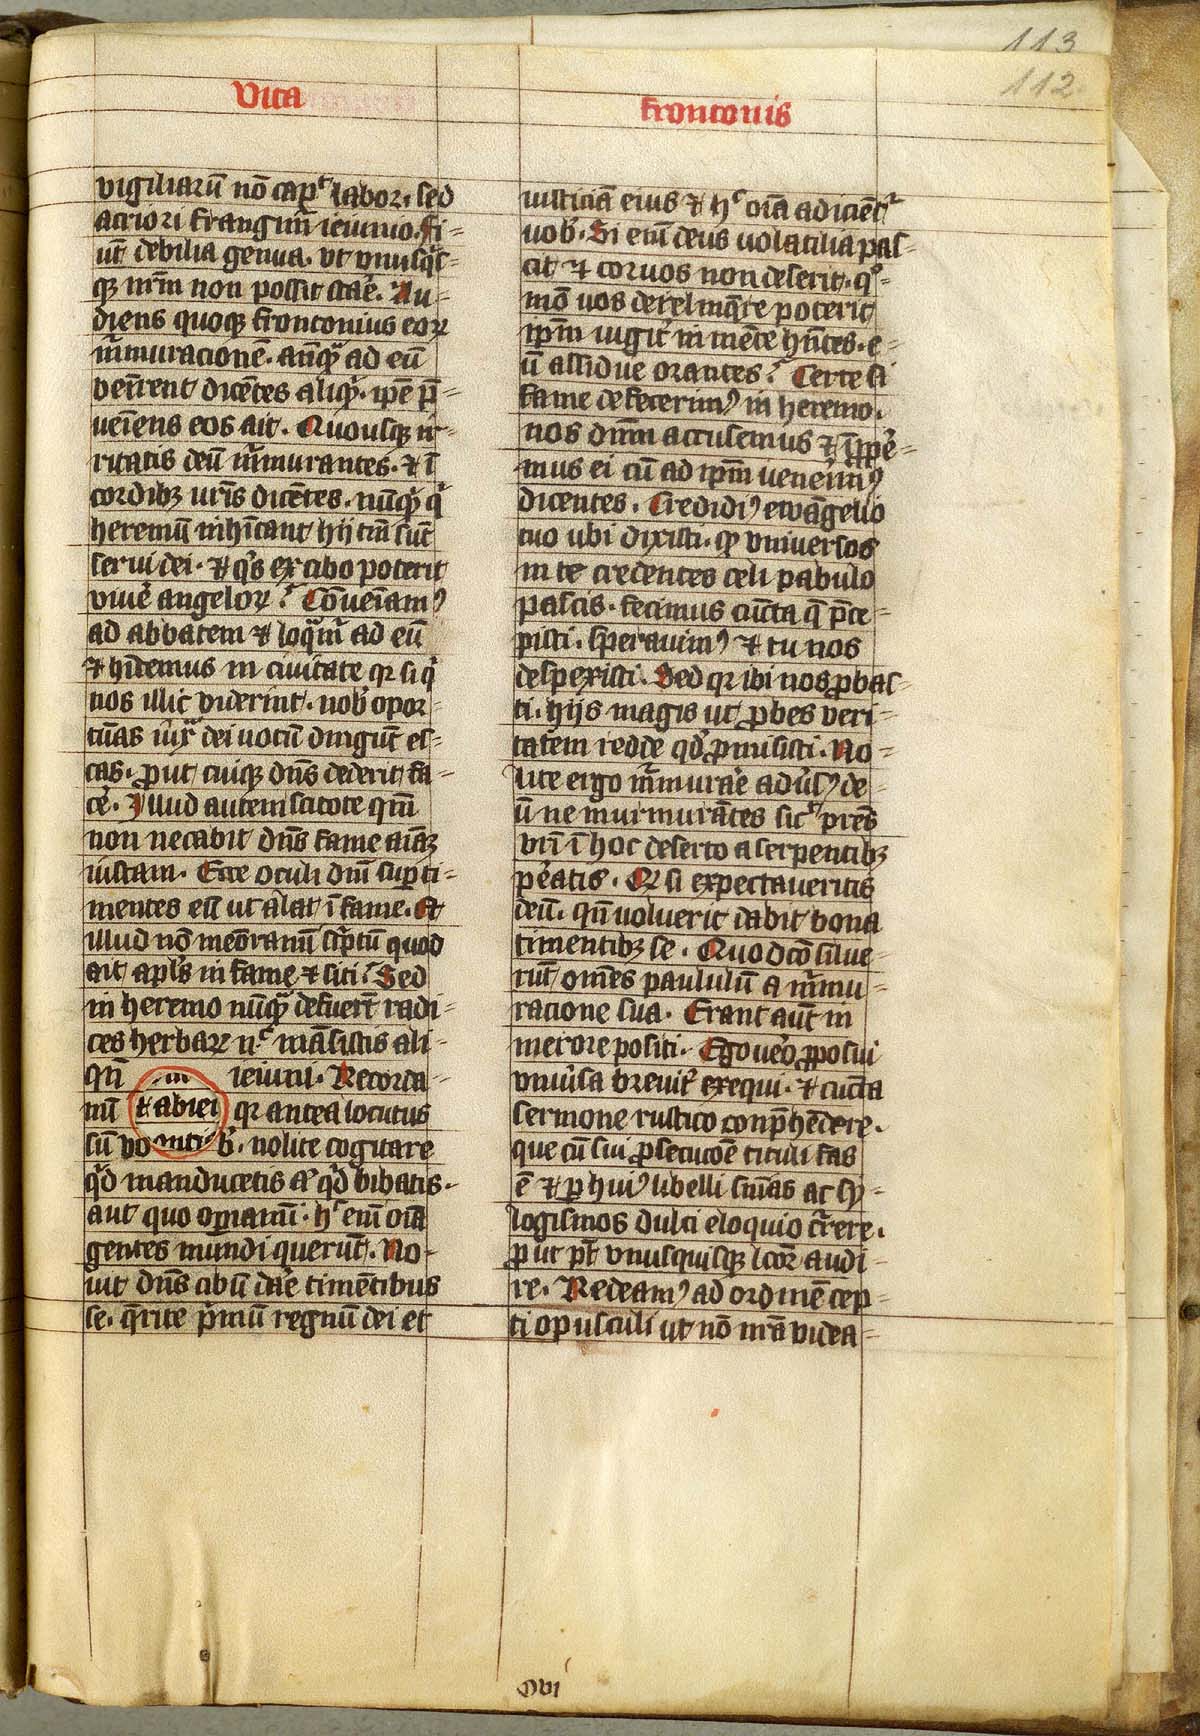 113
112
Vita
frontonis
vigiliarū nō cap̄t labor. sed
acriori frangim̄ ieiunio. fi-
ūt debilia genua. vt vnusq̄s-
qꝫ nr̄m non possit stare. Au-
diens quoqꝫ frontonius eoꝝ
m̄muracionē. anq̄ ad eū
ven̄rent dicētes aliq̄. ipe p̄-
ueīens eos ait. Quousqꝫ ir-
ritatis deū m̄murantes. ⁊ ī
cordibꝫ vr̄is dicētes. nūq̄ q̄
heremū inhītant hij tm̄ sūt
serui dei. ⁊ q̄s ex cibo poterit
viuē angeloꝝ. Cōueīamꝰ
ad abbatem ⁊ loq̄m̄ ad eū
⁊ hītemus in ciuitate qꝛ si q̄
nos illic viderint. nob̄ opor-
tūas iux̄ dei uotū dirigūt es-
cas. ꝓut cuiqꝫ dn̄s dederit fa-
cē. Illud autem scitote qm̄
non necabit dn̄s fame aīaꝫ
iustam. Ecce oculi dn̄i suꝑ ti-
mentes eū ut alat ī fame. At
illud nō meōranū sc̄ptū quod
ait apl̄s in fame ⁊ siti. Sed
in heremo nūq̄ defuer̄t radi-
ces herbaꝝ nͨ māsistis ali-
qn̄ in ieiunij. Recorda-
mī ⁊ abiei qꝛ antea locutus
sū vo intis b̄. nolite cogitare
q̄d manducetis ul̄ q̄d bibatis.
aut quo oꝑiamī. hͨ eni oīa
gentes mundi querūt. No-
uit dn̄s cibū dare timētibus
se. q̄rite p̄mū regnū dei et
iusticiā eius ⁊ hͨ oīa adiciēt᷑
uob̄. Si eni deus uolatilia pas-
cit ⁊ coruos non deserit. q̊-
mō uos derelinq̄re poterit
ip̄m iugit̄ in mēte hn̄tes. e-
ū assidue orantes. Certe si
fame defecerimꝰ in heremo.
nos dn̄m accusemus ⁊ īꝓpe-
mus ei cū ad ip̄m venerimꝰ
dicentes. Credidꝰ ewāgelio
tuo ubi dixisti. qꝙ vniuersos
in te credentes celi pabulo
pascis. fecimus cūcta q̄ p̄ce-
pisti. sperauimꝰ ⁊ tu nos
despexisti. Sed qꝛ ibi nos ꝓbas-
ti. hijs magis ut ꝓbes veri-
tatem redde qd̄ ꝓmisisti. No-
lite ergo m̄murare adūsꝰ de-
ū ne murmurātes sic̄ pr̄es
vr̄i ī hoc deserto a serpentibꝫ
ꝑeatis. Qꝛ si expectaueritis
deū. qn̄ uoluerit dabit bona
timentibꝫ se. Quo dc̄o silue-
rūt om̄es paululū a m̄mu-
racione sua. Erant aūt in
merore positi. Ego uero ꝓposui
vniūsa breuit̄ exequi. ⁊ cuncta
sermone rustico conp̄hēdere.
que cū sui ꝓsecucōe tituli fas
ē ⁊ ꝑ huiꝰ libelli sniās ac sy-
logismos dulci eloquio c̄rere.
ꝓut pt̄ vnusquisqꝫ l̄coꝝ audi-
re. Redeamꝰ ad ordinē cep-
ti opusculi ut nō nr̄a videa-
Qui